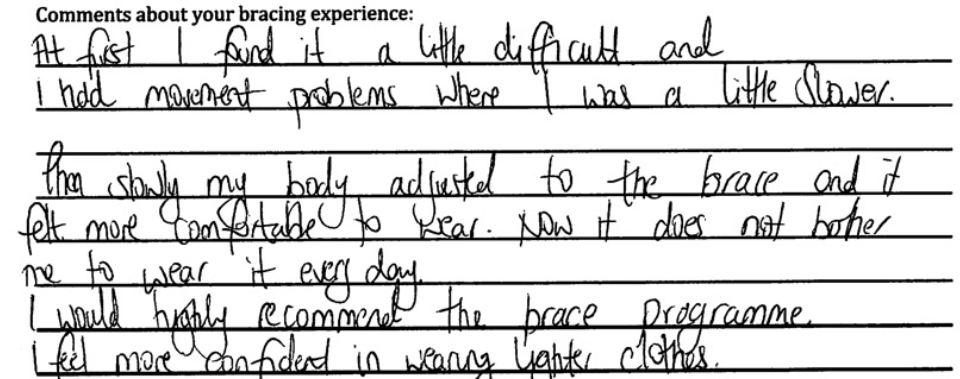 Comments about your bracing experience:
At first I found it a little difficult and
i had movement problems where I was a little slower.
then slowly my body adjusted to the brace and it
felt more comfortable to wear. Now it does not bother
me to wear it every day.
I would highly recommend the brace programme.
I feel more confident in wearing lighter clothes.